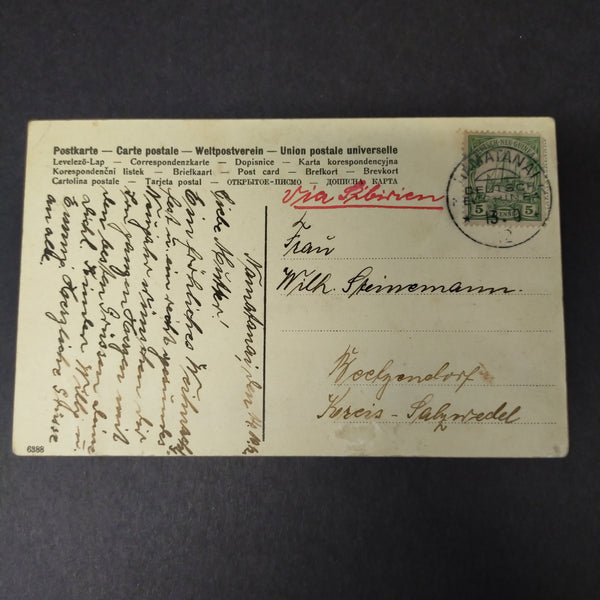 Postkarte — Carte postale — Weltpostverein — Union postale universelle
Levelező-Lap — Correspondenzkarte — Dopisnice — Karta korespondencyjna
Korespondenční listek — Briefkaart — Post card — Brefkort — Brevkort
Cartolina postale — Tarjeta postal — ОТКРЫТОЕ-ПИСМО — ДОПИСНА КАРТА
Via Sibirien
NAMATANAI
5 5
Frau
Wilh. Steinemann.
Kreis-Salzwedel
Namatanai, den
Liebe Mutter!
Ein fröhliches Weihnachts
fest u. ein recht gesundes
Neujahr wünschen dir
mit
den besten Grüssen Deine
Willy u.
Emmy. Herzliche Grüsse
an alle.
6388